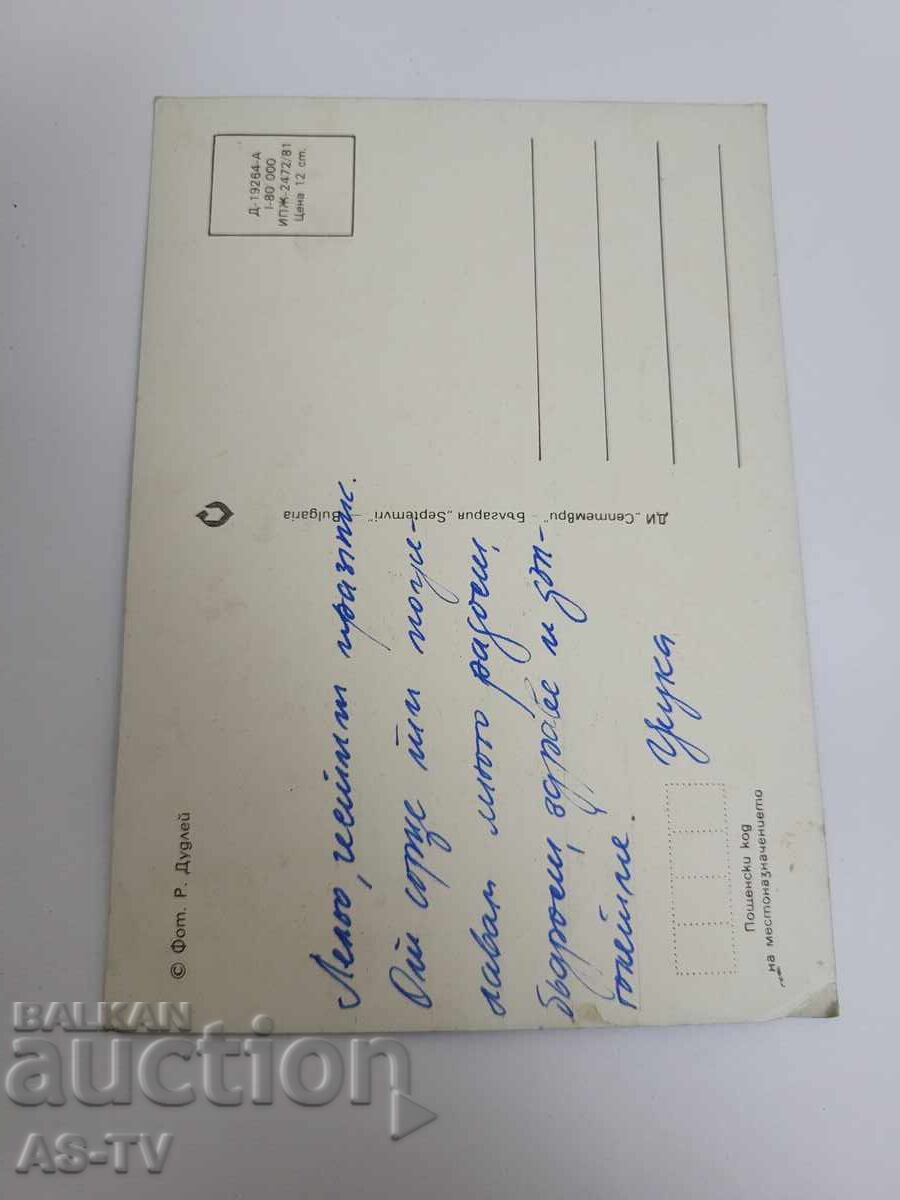 © Фот. Р. Дудлей
Лельо, честит празник.
От сърце ти поже-
лавам много радост,
бодрост, здраве и дъл-
голетие.
ДИ „Септември" – България „Septemvri" – Bulgaria
Д-19264-А
I-80 000
ИПЖ-2472/81
Цена 12 ст.
Пощенски код
на местоназначението
BALKAN
auction
AS-TV